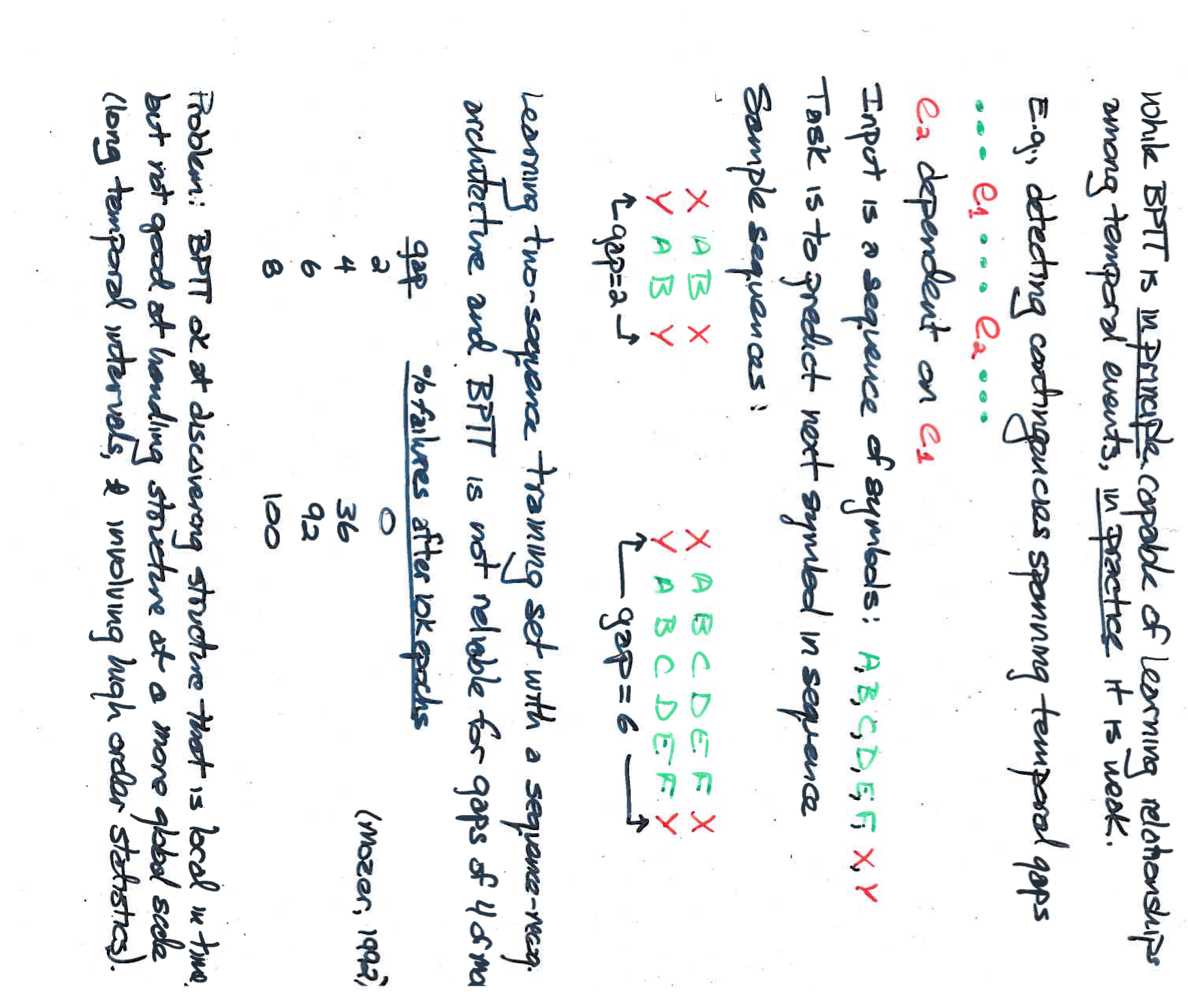 While BPTT is in principle capable of learning relationships
among temporal events, in practice it is weak.
E.g., detecting contingencies spanning temporal gaps
.... e1 .... e2 ....
e2 dependent on e1
Input is a sequence of symbols: A, B, C, D, E, F, X, Y
Task is to predict next symbol in sequence
Sample sequences:
X A B X X A B C D E F X
Y A B Y Y A B C D E F Y
gap=2 gap=6
Learning two-sequence training set with a sequence-recog.
architecture and BPTT is not reliable for gaps of 4 or mo
gap % failures after 10k epochs
2 0
4 36
6 92
8 100
(Mozer, 1992)
Problem: BPTT ok at discovering structure that is local in time
but not good at handling structure at a more global scale
(long temporal intervals, & involving high order statistics).